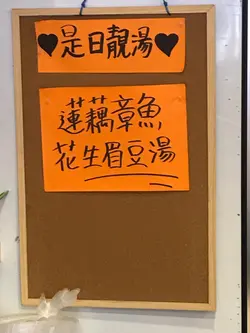 ♥是日靚湯♥
蓮藕章魚
花生眉豆湯